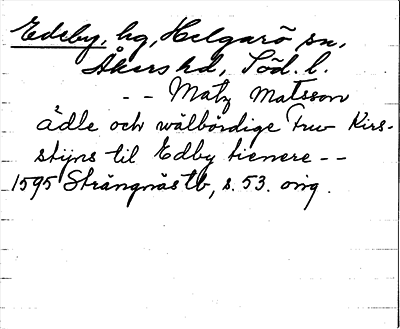 Edeby, hg, Helgarö sn,
Åkers hd, Söd. l.
-- Matz Matsson
ädle och wälbördige Fruv Kirs-
stijns til Edby tienere --
1595 Strängnästb, s. 53. orig.